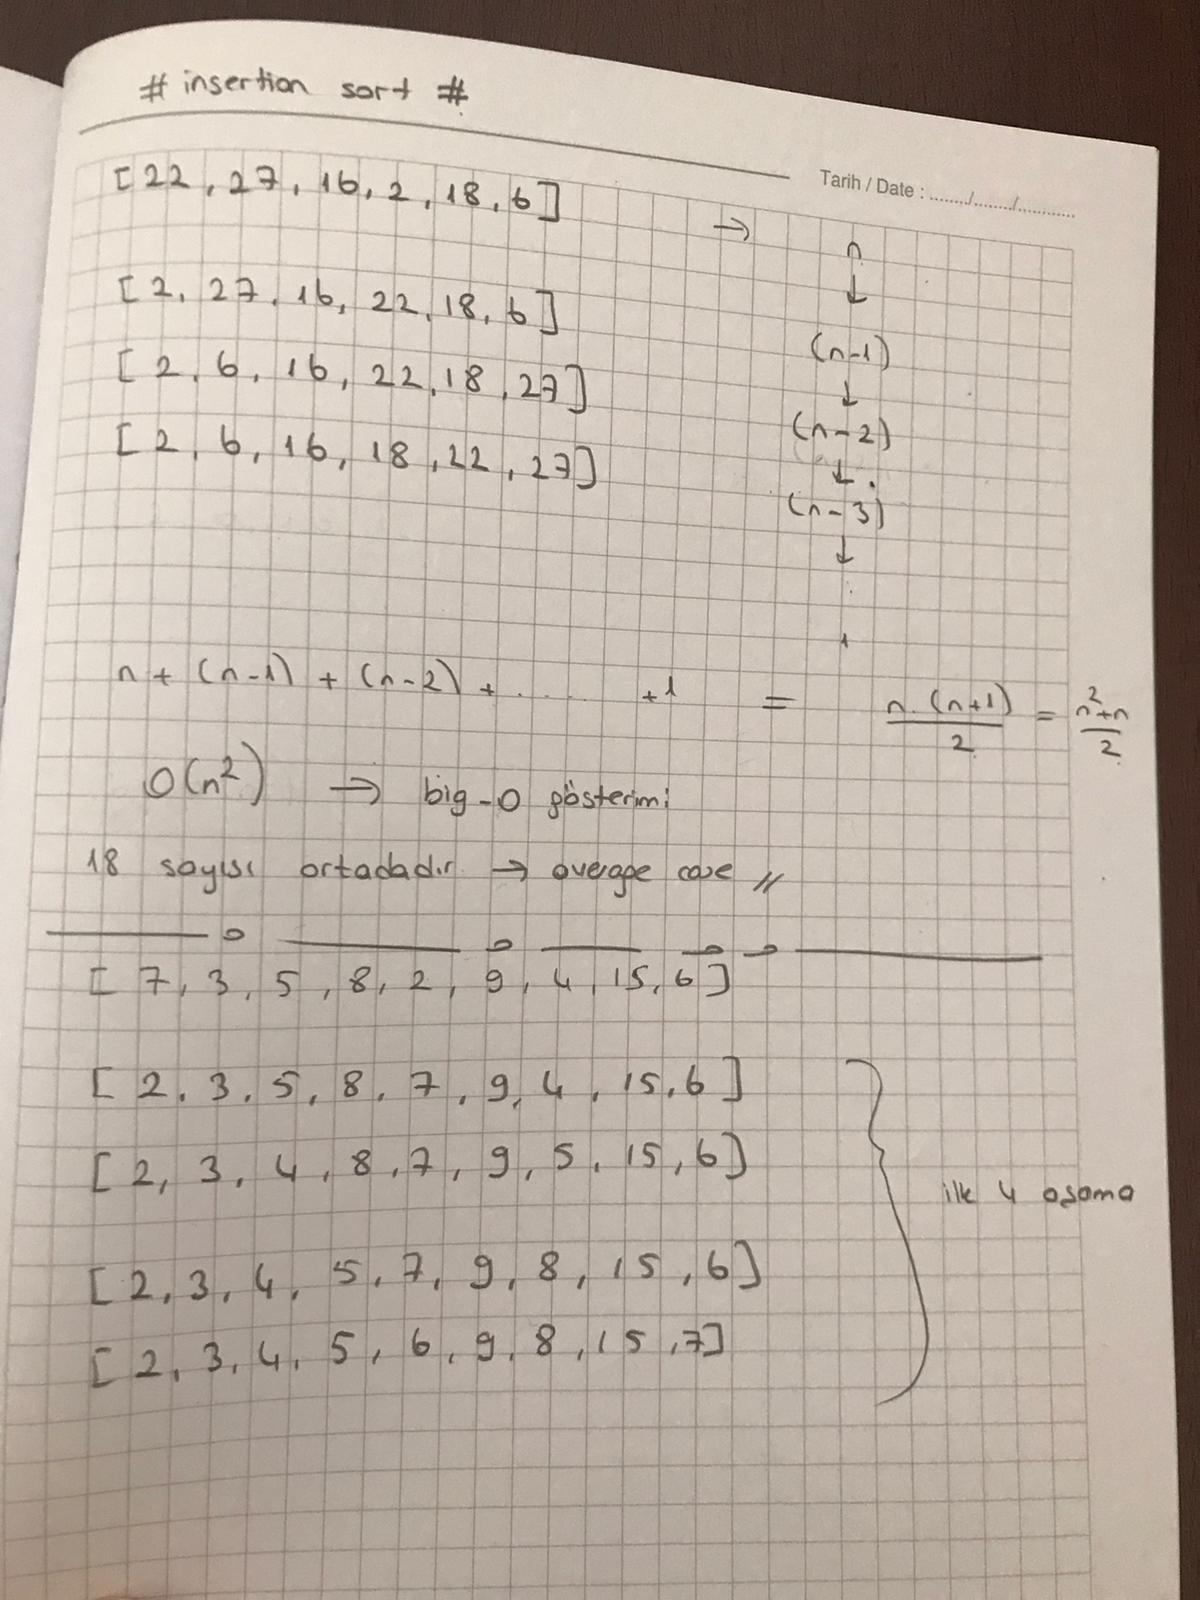 # insertion sort #
Tarih / Date : ......../......../............
[22, 27, 16, 2, 18, 6] → n
↓
[2, 27, 16, 22, 18, 6] (n-1)
↓
[2, 6, 16, 22, 18, 27] (n-2)
↓
[2, 6, 16, 18, 22, 27] (n-3)
↓
.
.
1
n + (n-1) + (n-2) + ..... +1 = n.(n+1)/2 = n²+n/2
O(n²) → big-O gösterimi
18 sayısı ortadadır → average case //
[7, 3, 5, 8, 2, 9, 4, 15, 6]
[2, 3, 5, 8, 7, 9, 4, 15, 6]
[2, 3, 4, 8, 7, 9, 5, 15, 6]
ilk 4 aşama
[2, 3, 4, 5, 7, 9, 8, 15, 6]
[2, 3, 4, 5, 6, 9, 8, 15, 7]